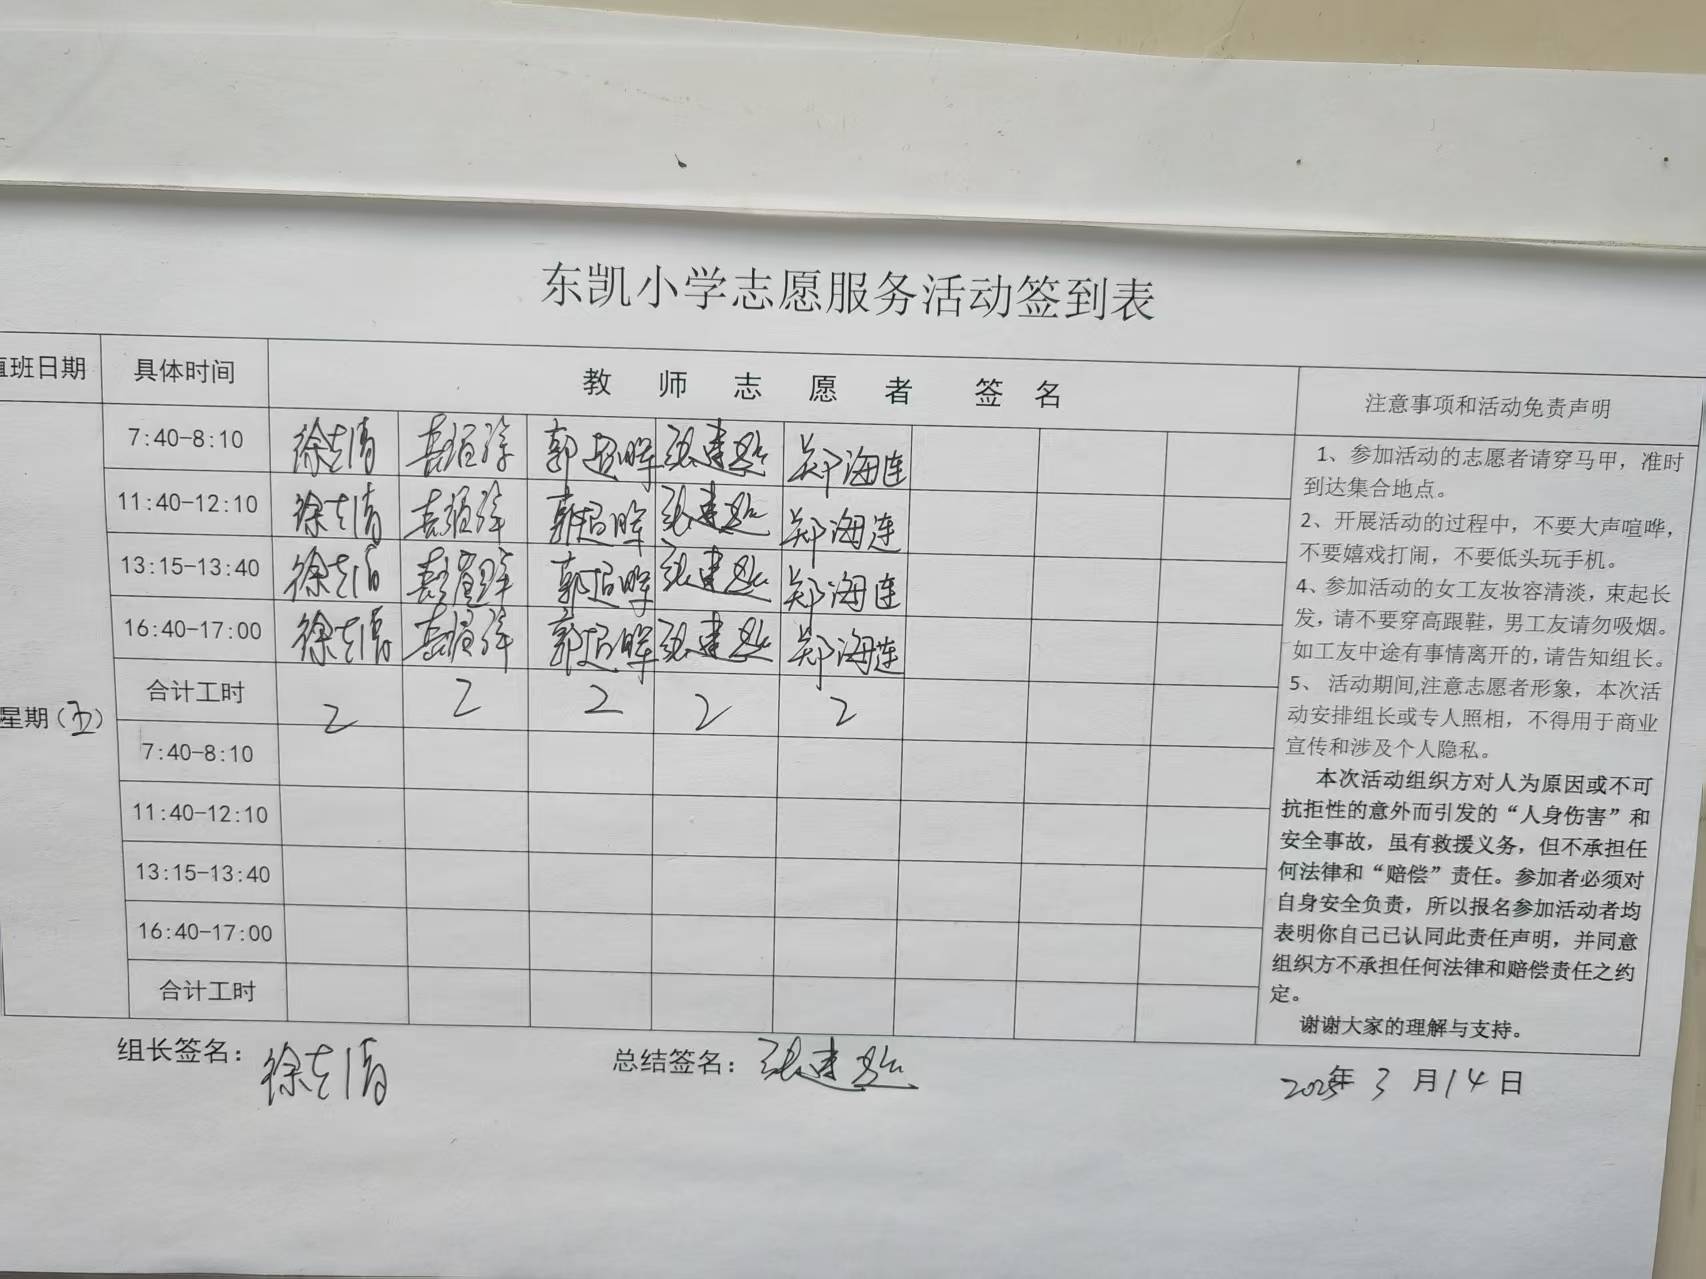 东凯小学志愿服务活动签到表
值班日期 具体时间 教师志愿者签名 注意事项和活动免责声明
7:40-8:10 徐志清 郭超晖 张建 郑海连
11:40-12:10 徐志清 郭超晖 张建 郑海连
13:15-13:40 徐志清 郭超晖 张建 郑海连
16:40-17:00 徐志清 郭超晖 张建 郑海连
合计工时 2 2 2 2 2
星期(五)
7:40-8:10
11:40-12:10
13:15-13:40
16:40-17:00
合计工时
1、参加活动的志愿者请穿马甲，准时
到达集合地点。
2、开展活动的过程中，不要大声喧哗，
不要嬉戏打闹，不要低头玩手机。
4、参加活动的女工友妆容清淡，束起长
发，请不要穿高跟鞋，男工友请勿吸烟。
如工友中途有事情离开的，请告知组长。
5、 活动期间,注意志愿者形象，本次活
动安排组长或专人照相，不得用于商业
宣传和涉及个人隐私。
本次活动组织方对人为原因或不可
抗拒性的意外而引发的“人身伤害”和
安全事故，虽有救援义务，但不承担任
何法律和“赔偿”责任。参加者必须对
自身安全负责，所以报名参加活动者均
表明你自己已认同此责任声明，并同意
组织方不承担任何法律和赔偿责任之约
定。
谢谢大家的理解与支持。
组长签名： 徐志清 总结签名： 张建 2025年 3 月 14 日